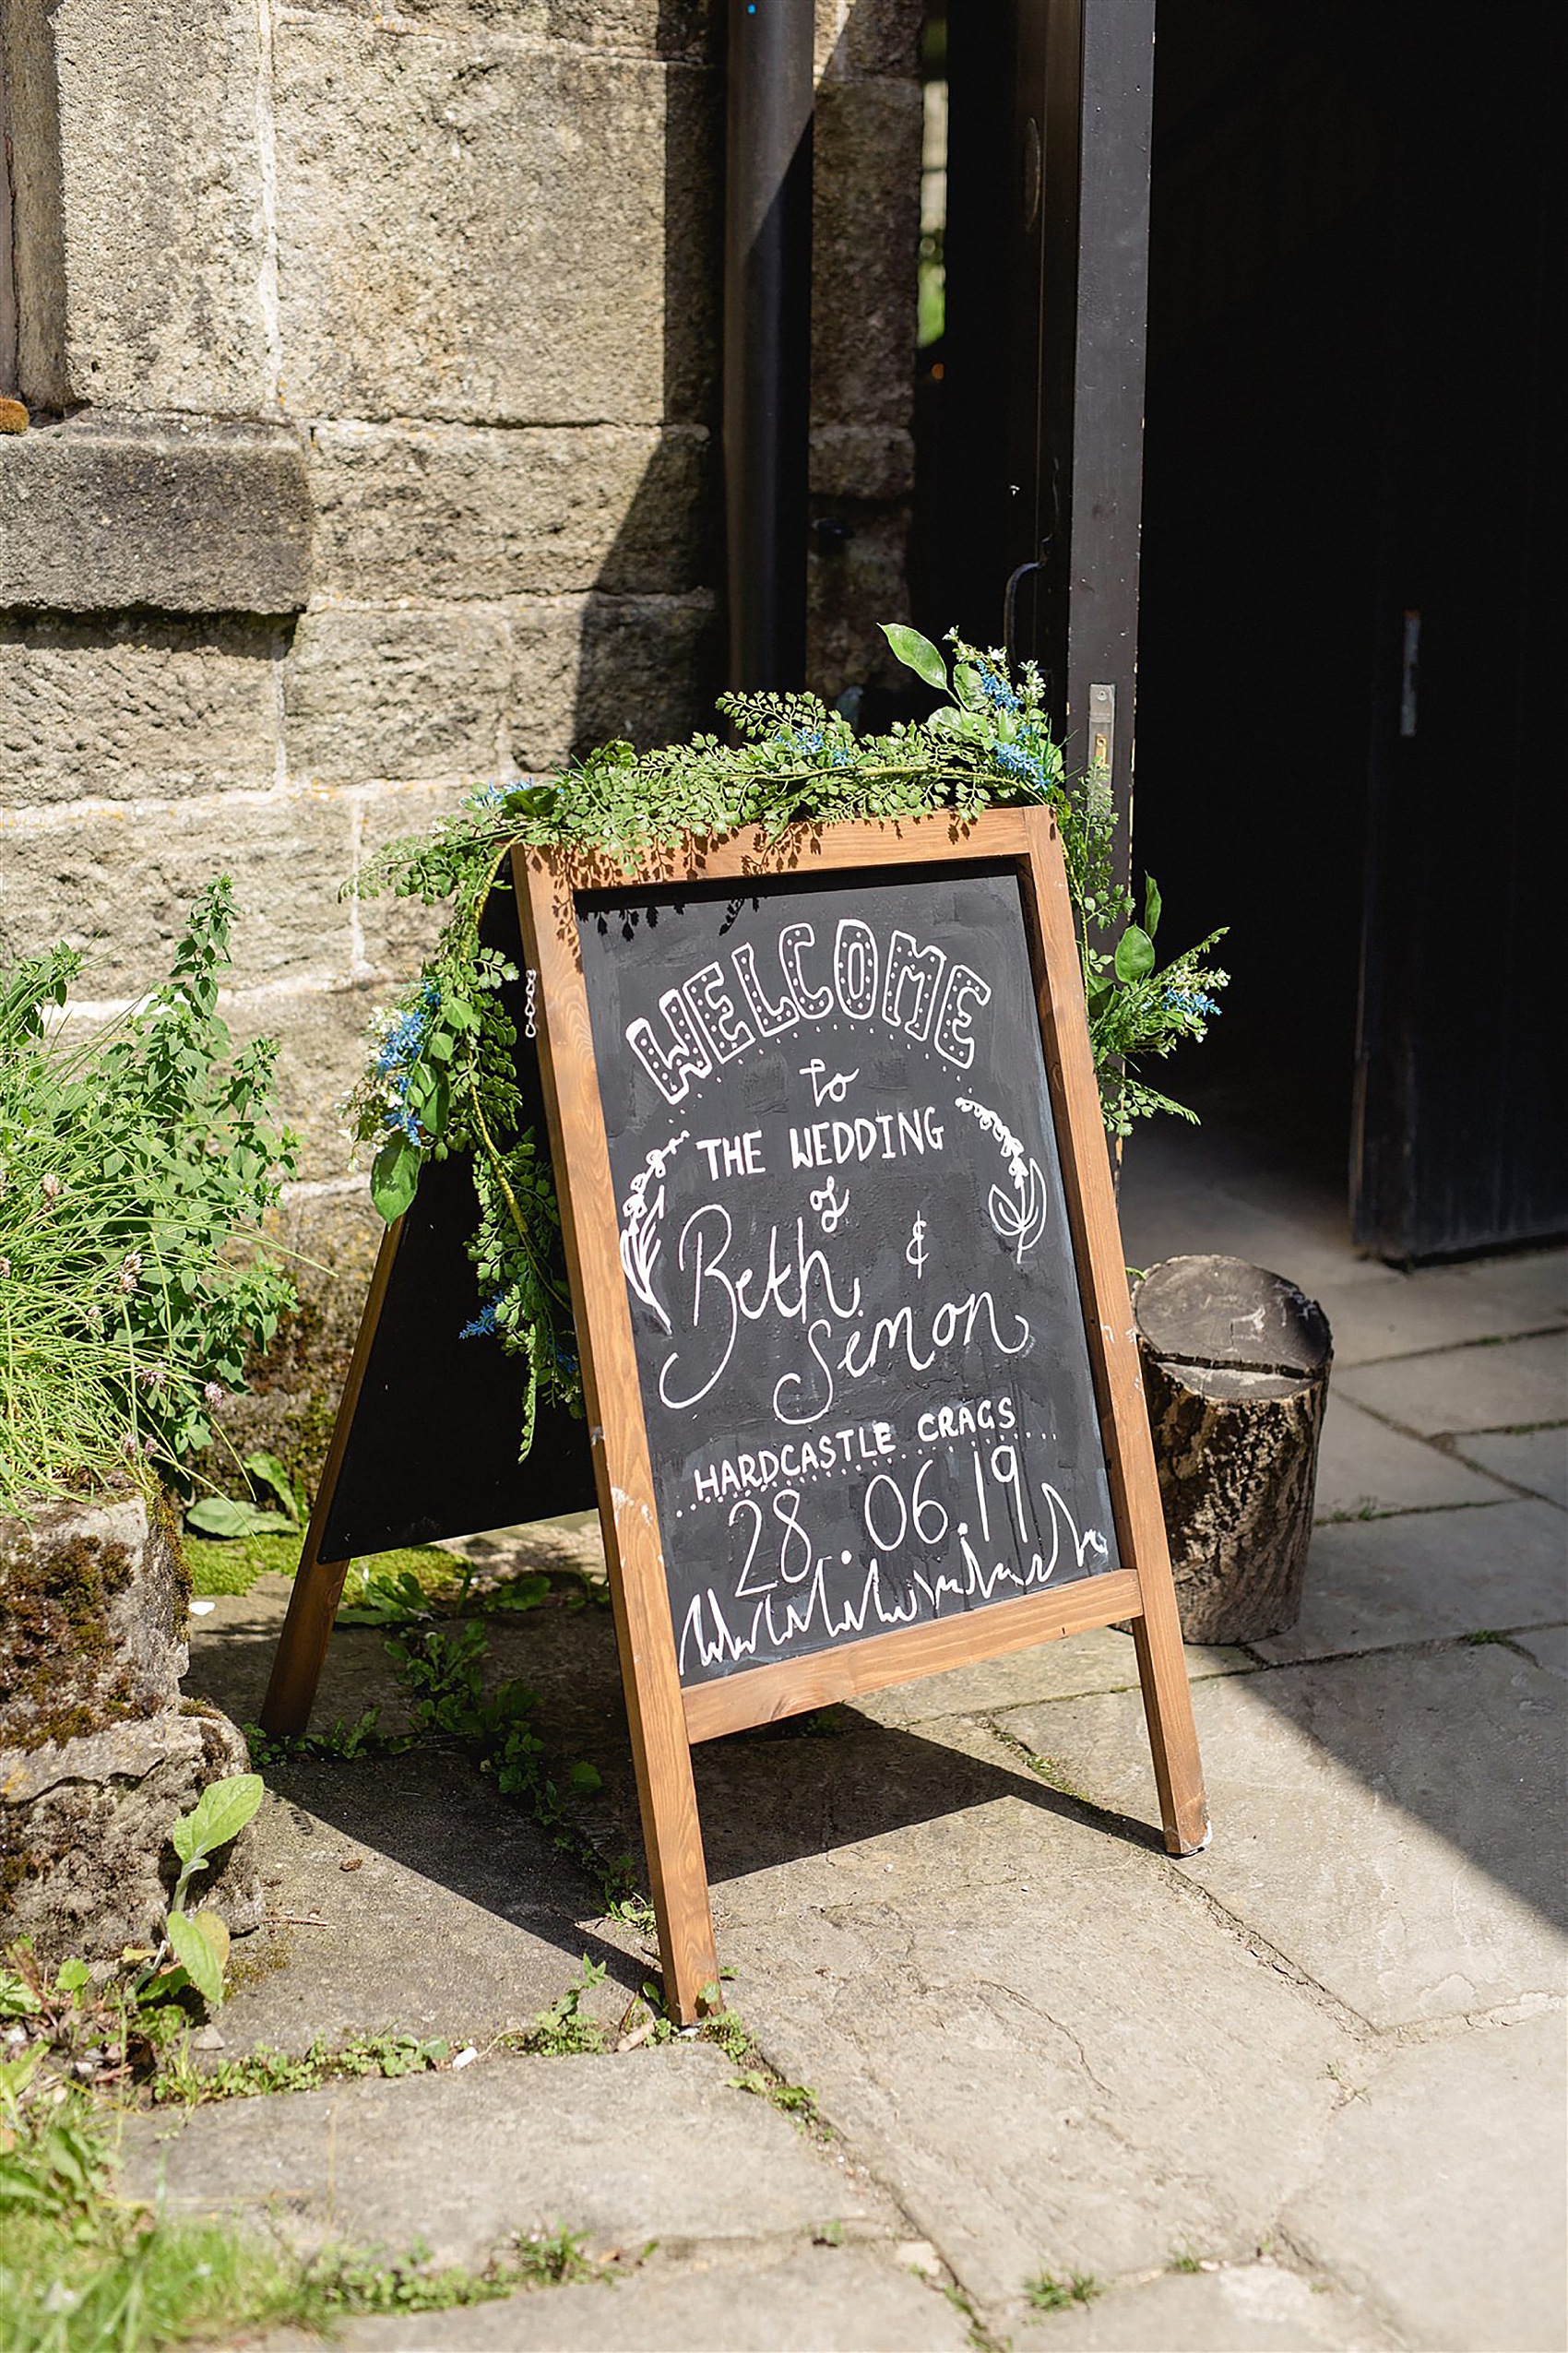 WELCOME
to
THE WEDDING
of
Beth &
Simon
HARDCASTLE CRAGS
28.06.19